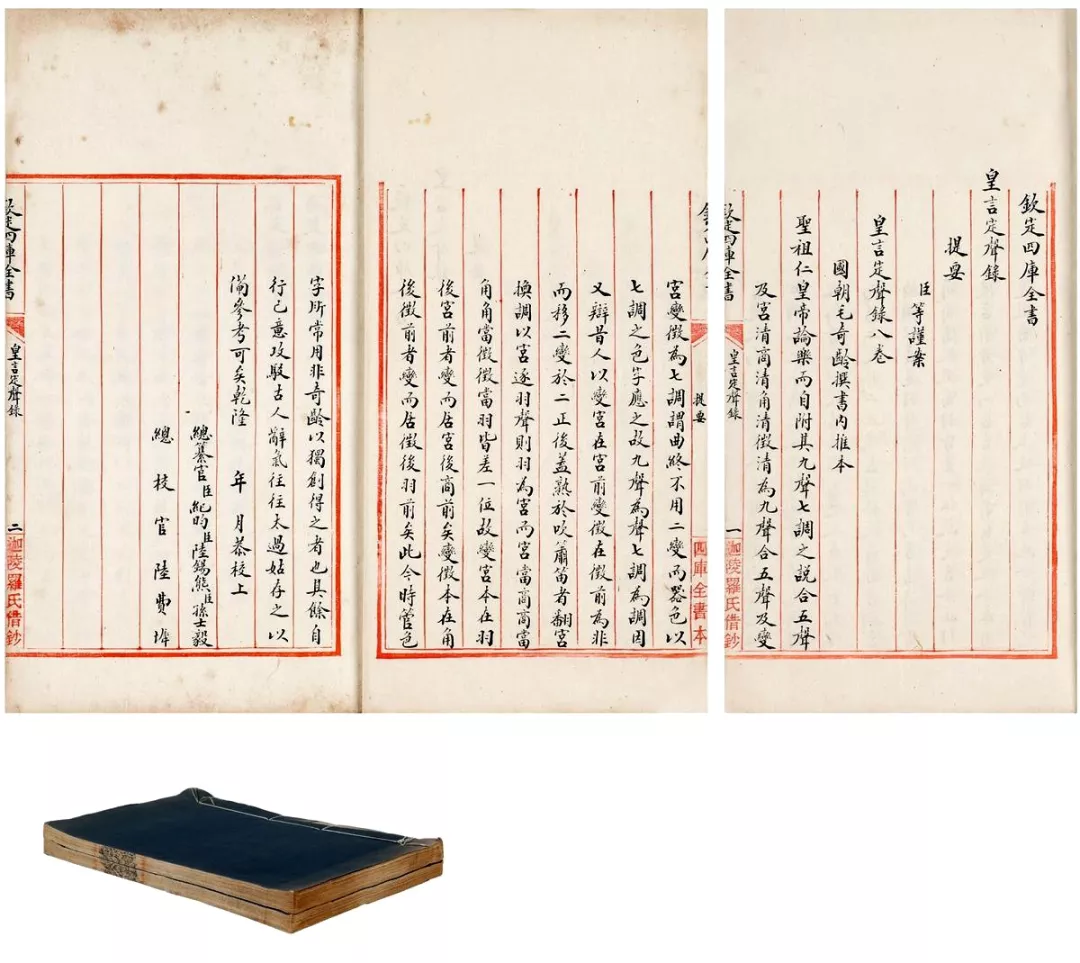 欽定四庫全書
皇言定聲錄
提要
臣等謹案
皇言定聲錄八卷
國朝毛奇齡撰書內推本
聖祖仁皇帝論樂而自附其九聲七調之説合五聲
及宮清商清角清徵清為九聲合五聲及變
欽定四庫全書 皇言定聲錄 一 迦陵羅氏借鈔
提要 四庫全書本
宮變徵為七調謂曲終不用二變而器色以
七調之色字應之故九聲為聲七調為調因
又辯昔人以變宮在宮前變徵在徵前為非
而移二變於二正後蓋熟於吹簫笛者翻宮
換調以宮逐羽聲則羽為宮而宮當商商當
角角當徵徵當羽皆差一位故變宮本在羽
後宮前者變而居宮後商前矣變徵本在角
後徵前者變而居徵後羽前矣此今時管色
字所常用非奇齡以獨創得之者也其餘自
行已意攻駁古人辭氣往往太過姑存之以
備參考可矣乾隆 年 月恭校上
總纂官臣紀昀臣陸錫熊臣孫士毅
總校官陸費墀
欽定四庫全書 皇言定聲錄 二 迦陵羅氏借鈔